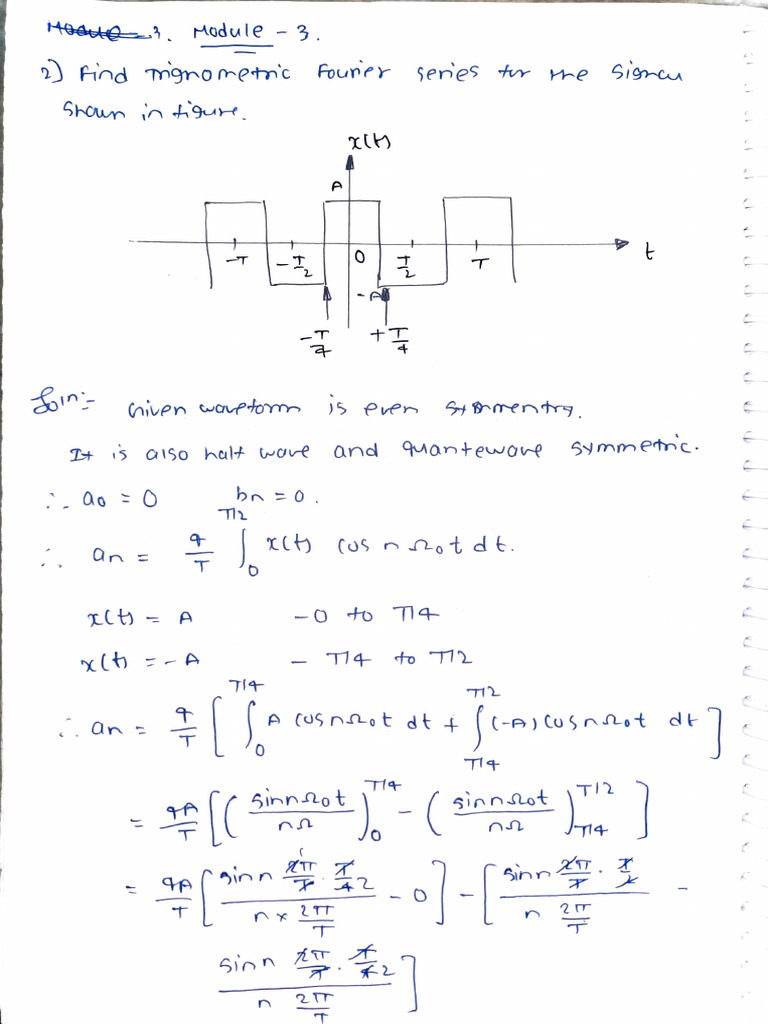 Module - 3. Module - 3.
2) Find Trignometric Fourier series for the signal
shown in figure.
x(t)
A
-T -T/2 0 T/2 T t
-A
-T/4 +T/4
Soln:- Given waveform is even symmentry.
It is also half wave and quantewave symmetric.
∴ a0 = 0 bn = 0.
∴ an = 4/T ∫_0^{T/2} x(t) cos n Ω0t dt.
x(t) = A - 0 to T/4
x(t) = -A - T/4 to T/2
∴ an = 4/T [ ∫_0^{T/4} A cos nΩ0t dt + ∫_{T/4}^{T/2} (-A) cos nΩ0t dt ]
= 4A/T [ ( sin nΩ0t / nΩ )_0^{T/4} - ( sin nΩ0t / nΩ )_{T/4}^{T/2} ]
= 4A/T [ sin n 2π/T · T/4 2 / n × 2π/T - 0 ] - [ sin n 2π/T · T/2 / n 2π/T -
sin n 2π/T · T/4 2 / n 2π/T ]